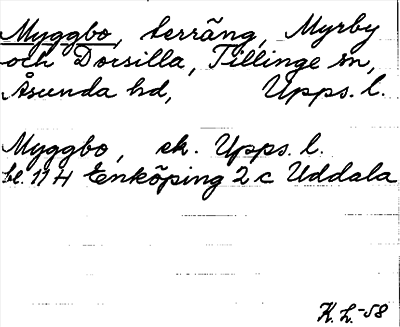 Myggbo, terräng, Myrby
och Dorsilla, Tillinge sn,
Åsunda hd, Upps. l.
Myggbo, ek. Upps. l.
bl. 11 H Enköping 2 c Uddala
K. L. -58